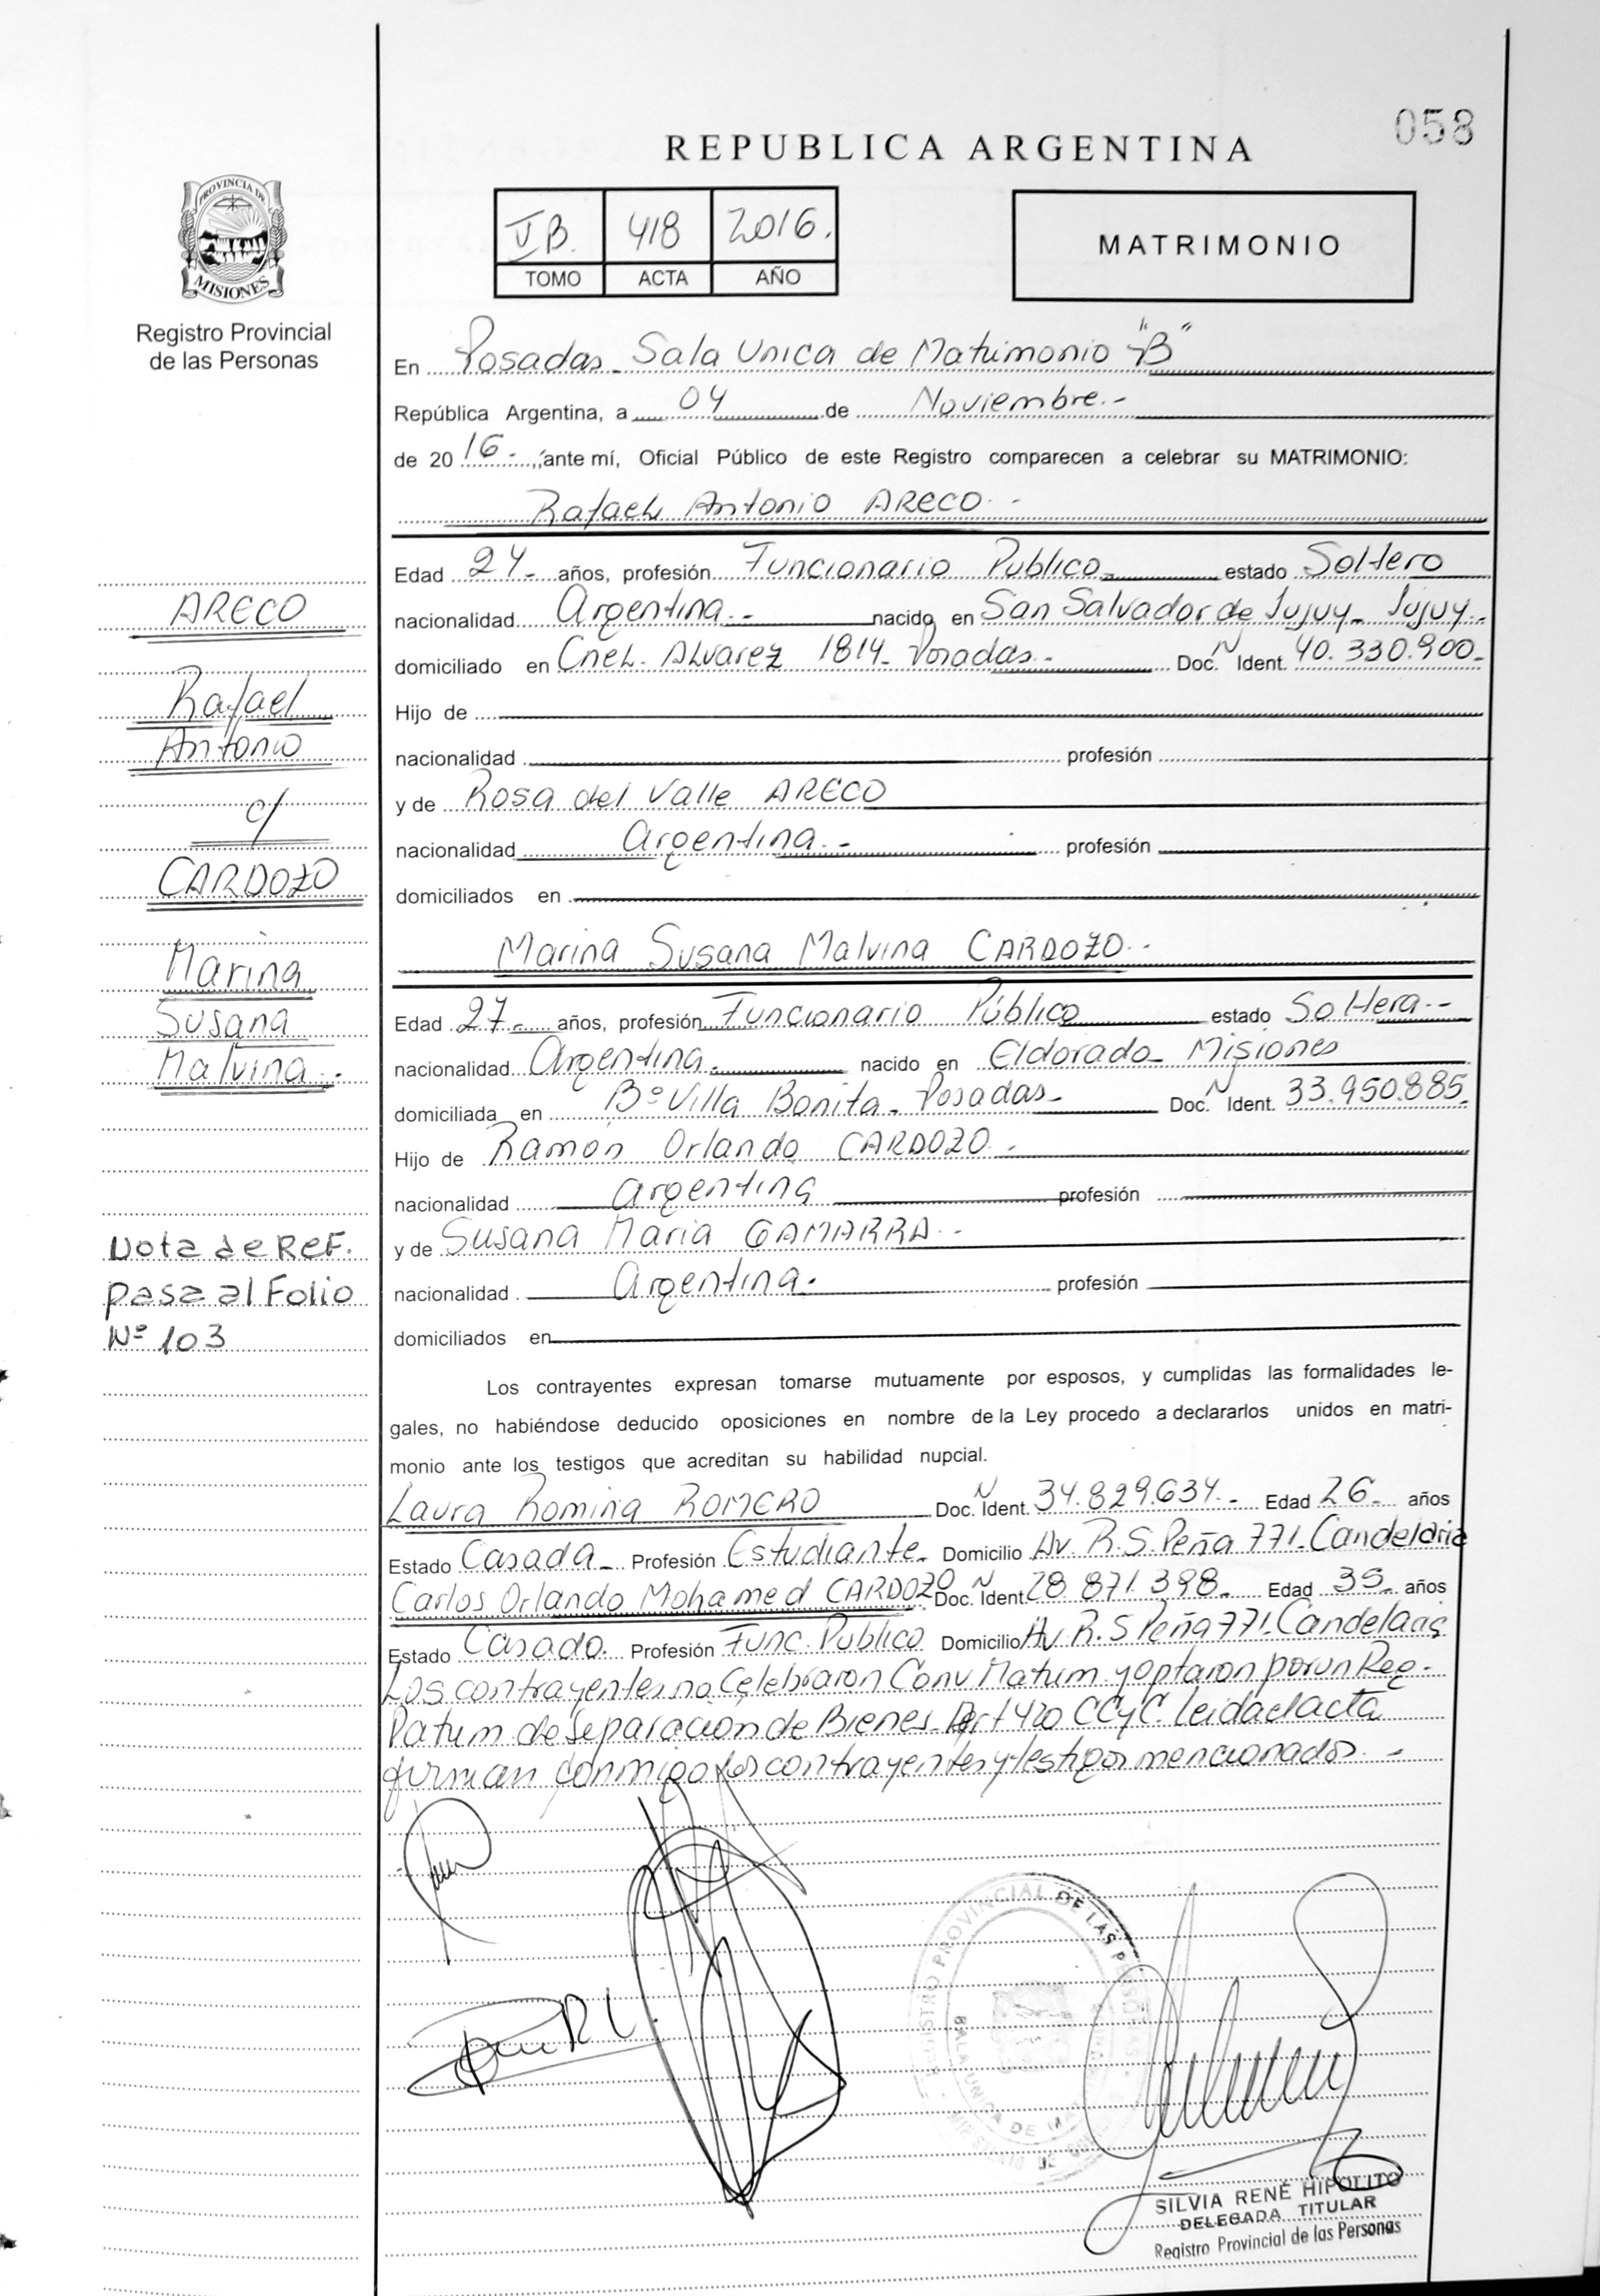 058
REPUBLICA ARGENTINA
PROVINCIA DE
MISIONES
Registro Provincial
de las Personas
II B. 418 2016.
TOMO ACTA AÑO
MATRIMONIO
En Posadas - Sala Unica de Matrimonio "B"
República Argentina, a 04 de Noviembre.-
de 2016.-, ante mí, Oficial Público de este Registro comparecen a celebrar su MATRIMONIO:
Rafael Antonio ARECO.-
Edad 24- años, profesión Funcionario Publico- estado Soltero
nacionalidad Argentina.- nacido en San Salvador de Jujuy- Jujuy.-
domiciliado en Cnel. Alvarez 1814- Posadas.- Doc. N Ident. 40.330.900-
Hijo de
nacionalidad profesión
y de Rosa del Valle ARECO
nacionalidad Argentina.- profesión
domiciliados en
Marina Susana Malvina CARDOZO.-
Edad 27- años, profesión Funcionario Público estado Soltera.-
nacionalidad Argentina. nacido en Eldorado- Misiones
domiciliada en Bº Villa Bonita- Posadas- Doc. N Ident. 33.950.885.
Hijo de Ramón Orlando CARDOZO.-
nacionalidad Argentina profesión
y de Susana Maria GAMARRA.-
nacionalidad Argentina. profesión
domiciliados en
ARECO
Rafael
Antonio
c/
CARDOZO
Marina
Susana
Malvina.-
Nota de REF.
pasa al Folio
Nº 103
Los contrayentes expresan tomarse mutuamente por esposos, y cumplidas las formalidades le-
gales, no habiéndose deducido oposiciones en nombre de la Ley procedo a declararlos unidos en matri-
monio ante los testigos que acreditan su habilidad nupcial.
Laura Romina ROMERO Doc. N Ident. 34.829.634.- Edad 26- años
Estado Casada- Profesión Estudiante- Domicilio Av. R.S. Peña 771- Candelaria
Carlos Orlando Mohamed CARDOZO Doc. N Ident. 28 871.398- Edad 35- años
Estado Casado. Profesión Func. Publico Domicilio Av R.S Peña 771- Candelaria
Los contrayentes no Celebraron Conv Matrim. y optaron por un Reg-
Patrim. de Separacion de Bienes- Art 420 CCyC. Leida el acta
firman conmigo los contrayentes y testigos mencionados.-
REGISTRO PROVINCIAL DE LAS PERSONAS
SALA UNICA DE
SILVIA RENÉ HIPOLITO
DELEGADA TITULAR
Registro Provincial de las Personas